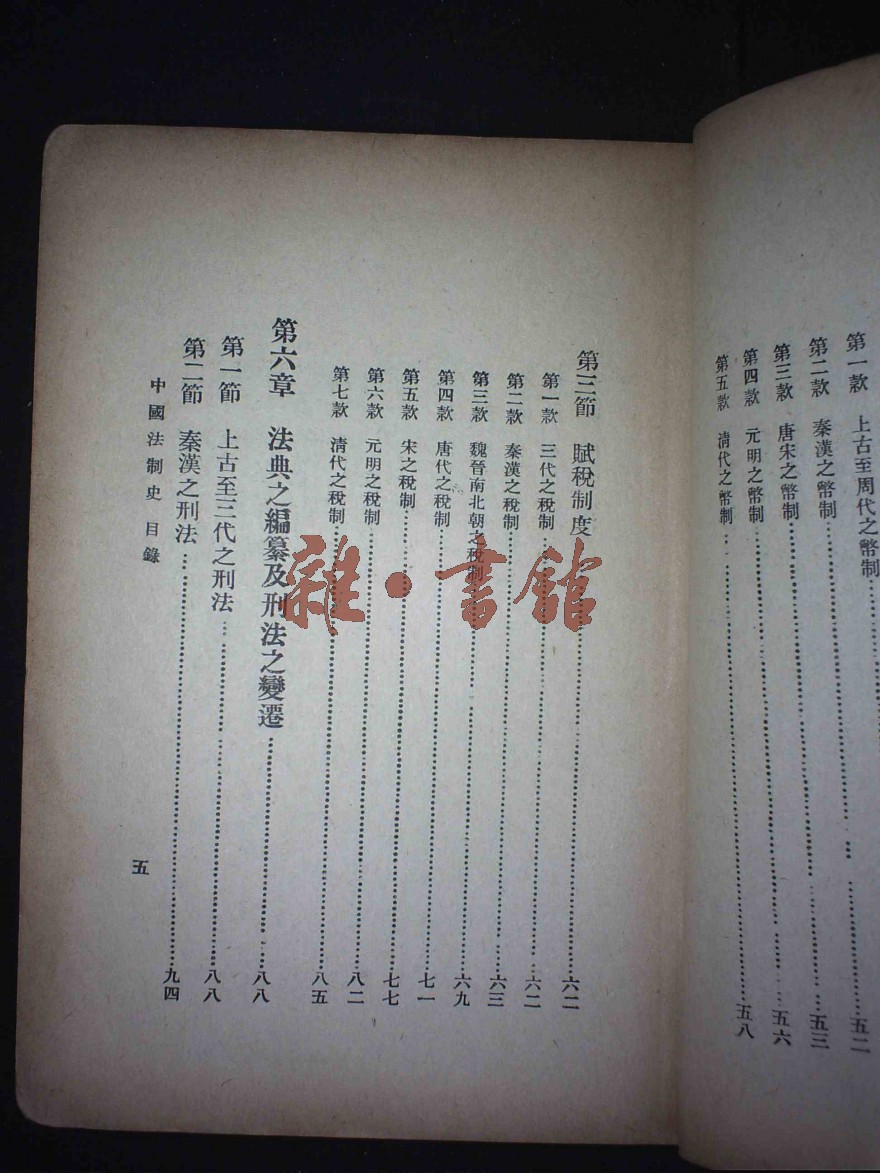 第一款　上古至周代之幣制……五二
第二款　秦漢之幣制……五三
第三款　唐宋之幣制……五六
第四款　元明之幣制
第五款　清代之幣制……五八
第三節　賦稅制度……六二
第一款　三代之稅制……六二
第二款　秦漢之稅制……六三
第三款　魏晉南北朝之稅制……六九
第四款　唐代之稅制……七一
第五款　宋之稅制……七七
第六款　元明之稅制……八二
第七款　清代之稅制……八五
第六章　法典之編纂及刑法之變遷……八八
第一節　上古至三代之刑法……八八
第二節　秦漢之刑法……九四
中國法制史　目錄
五
雜·書館